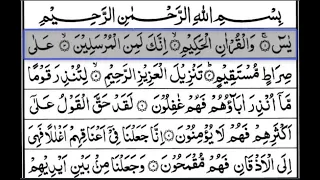 بِسْمِ اللهِ الرَّحْمٰنِ الرَّحِيْمِ
يٰسٓ ۚ وَالْقُرْاٰنِ الْحَكِيْمِ ۙ اِنَّكَ لَمِنَ الْمُرْسَلِيْنَ ۙ عَلٰى
صِرَاطٍ مُّسْتَقِيْمٍ ؕ تَنْزِيْلَ الْعَزِيْزِ الرَّحِيْمِ ۙ لِتُنْذِرَ قَوْمًا
مَّاۤ اُنْذِرَ اٰبَآؤُهُمْ فَهُمْ غٰفِلُوْنَ ۝ لَقَدْ حَقَّ الْقَوْلُ عَلٰۤى
اَكْثَرِهِمْ فَهُمْ لَا يُؤْمِنُوْنَ ۝ اِنَّا جَعَلْنَا فِيْۤ اَعْنَاقِهِمْ اَغْلٰلًا فَهِىَ
اِلَى الْاَذْقَانِ فَهُمْ مُّقْمَحُوْنَ ۝ وَجَعَلْنَا مِنْۢ بَيْنِ اَيْدِيْهِمْ